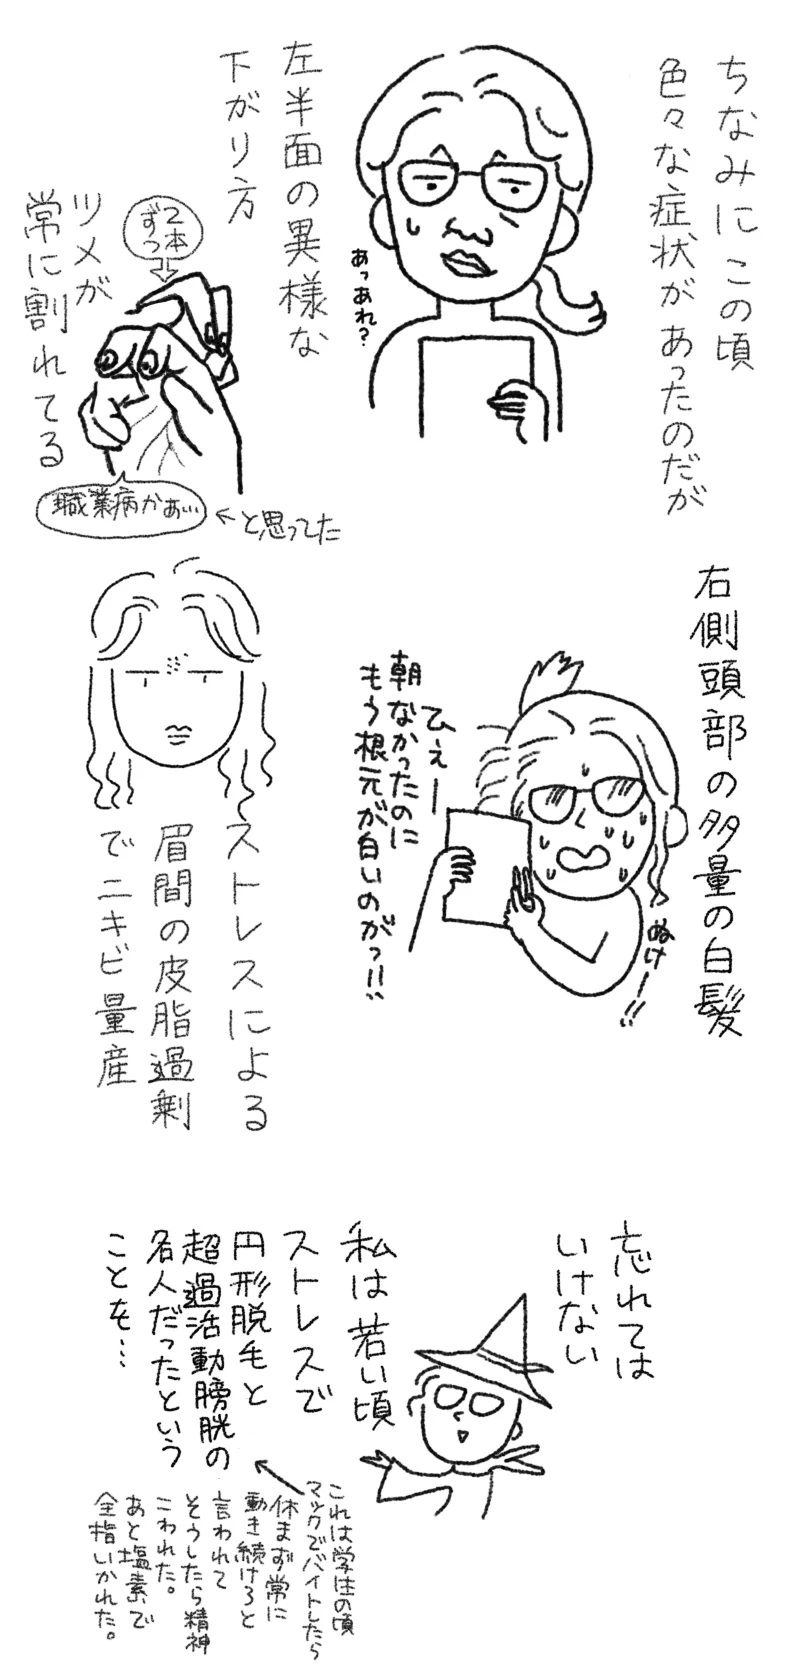 ちなみにこの頃
色々な症状があったのだが
左半面の異様な
下がり方
あっあれ?
2本
ずつ
ツメが
常に割れてる
職業病かぁ…
と思ってた
右側頭部の多量の白髪
ぬけー!!
ひぇー
朝なかったのに
もう根元が白いのがっ!!
ストレスによる
眉間の皮脂過剰
でニキビ量産
忘れては
いけない
私は若い頃
ストレスで
円形脱毛と
超過活動膀胱の
名人だったという
ことを…
これは学生の頃
マックでバイトしたら
休まず常に
動き続けろと
言われて
そうしたら精神
こわれた。
あと塩素で
全指いかれた。